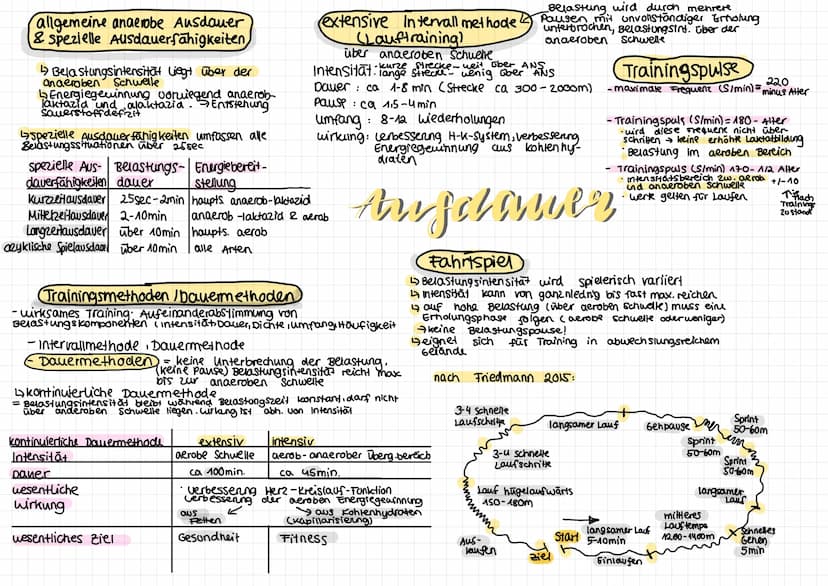 allgemeine anaerobe Ausdauer
& spezielle Ausdauerfähigkeiten
↳ Belastungsintensität liegt über der
anaeroben Schwelle
↳ Energiegewinnung vorwiegend anaerob-
laktazid und alaktazid. → Entstehung
Sauerstoffdefizit
↳ spezielle Ausdauerfähigkeiten umfassen alle
Belastungssituationen über 25sec
spezielle Aus- Belastungs- Energiebereit-
dauerfähigkeiten dauer stellung
Kurzzeitausdauer 25sec-2min haupts. anaerob-laktazid
Mittelzeitausdauer 2-10min anaerob-laktazid & aerob
Langzeitausdauer über 10min haupts. aerob
azyklische Spielausdauer über 10min alle Arten
Trainingsmethoden / Dauermethoden
- wirksames Training: Aufeinanderabstimmung von
Belastungskomponenten (Intensität, Dauer, Dichte, Umfang, Häufigkeit
- Intervallmethode, Dauermethode
- Dauermethoden = keine Unterbrechung der Belastung,
(keine Pause) Belastungsintensität reicht max
bis zur anaeroben Schwelle
↳ kontinuierliche Dauermethode
= Belastungsintensität bleibt während Belastungszeit konstant, darf nicht
über anderoben Schwelle liegen. Wirkung ist abh. von Intensität
kontinuierliche Dauermethode extensiv intensiv
Intensität aerobe Schwelle aerob-anaerober Überg.bereich
Dauer ca 100min. ca 45min.
wesentliche Wirkung · Verbesserung Herz-Kreislauf-Funktion
Verbesserung der aeroben Energiegewinnung
aus Fetten → aus Kohlenhydraten
(Kapillarisierung)
wesentliches Ziel Gesundheit Fitness
extensive Intervallmethode
(Lauftraining)
Belastung wird durch mehrere
Pausen mit unvollständiger Erholung
unterbrochen, Belastungsint. über der
anaeroben Schwelle
über anaeroben Schwelle
Intensität: kurze Strecke - weit über ANS
lange Strecke - wenig über ANS
Dauer: ca 1-8 min (Strecke ca 300-2000m)
Pause: ca 1,5-4min
Umfang: 8-12 Wiederholungen
Wirkung: Verbesserung H-K-System, Verbesserung
Energiegewinnung aus Kohlenhy-
draten
Trainingspulse
- maximale Frequenz (S/min) = 220
minus Alter
- Trainingspuls (S/min) = 180 - Alter
· wird diese Frequenz nicht über-
schritten → keine erhöhte Laktatbildung
· Belastung im aeroben Bereich
- Trainingspuls (S/min) 170 - 1/2 Alter
+/-10
· Intensitätsbereich zw. aerob
und anaeroben Schwelle
· Werte gelten für Laufen
↑ je nach
Trainings
zustand
Ausdauer
Fahrtspiel
↳ Belastungsintensität wird spielerisch variiert
↳ Intensität kann von ganz niedrig bis fast max. reichen
↳ auf hohe Belastung (über aeroben Schwelle) muss eine
Erholungsphase folgen (aerobe Schwelle oder weniger)
→ keine Belastungspause!
↳ eignet sich für Training in abwechslungsreichem
Gelände
nach Friedmann 2015:
3-4 schnelle
Laufschritte
langsamer Lauf
Gehpause
Sprint
50-60m
Sprint
50-60m
Sprint
50-60m
3-4 schnelle
Laufschritte
Lauf hügelaufwärts
150-180m
langsamer
Lauf
mittleres
Lauftempo
1200-1400m
schnelles
Gehen
5min
langsamer Lauf
5-10min
Start
Ziel
Aus-
laufen
Einlaufen